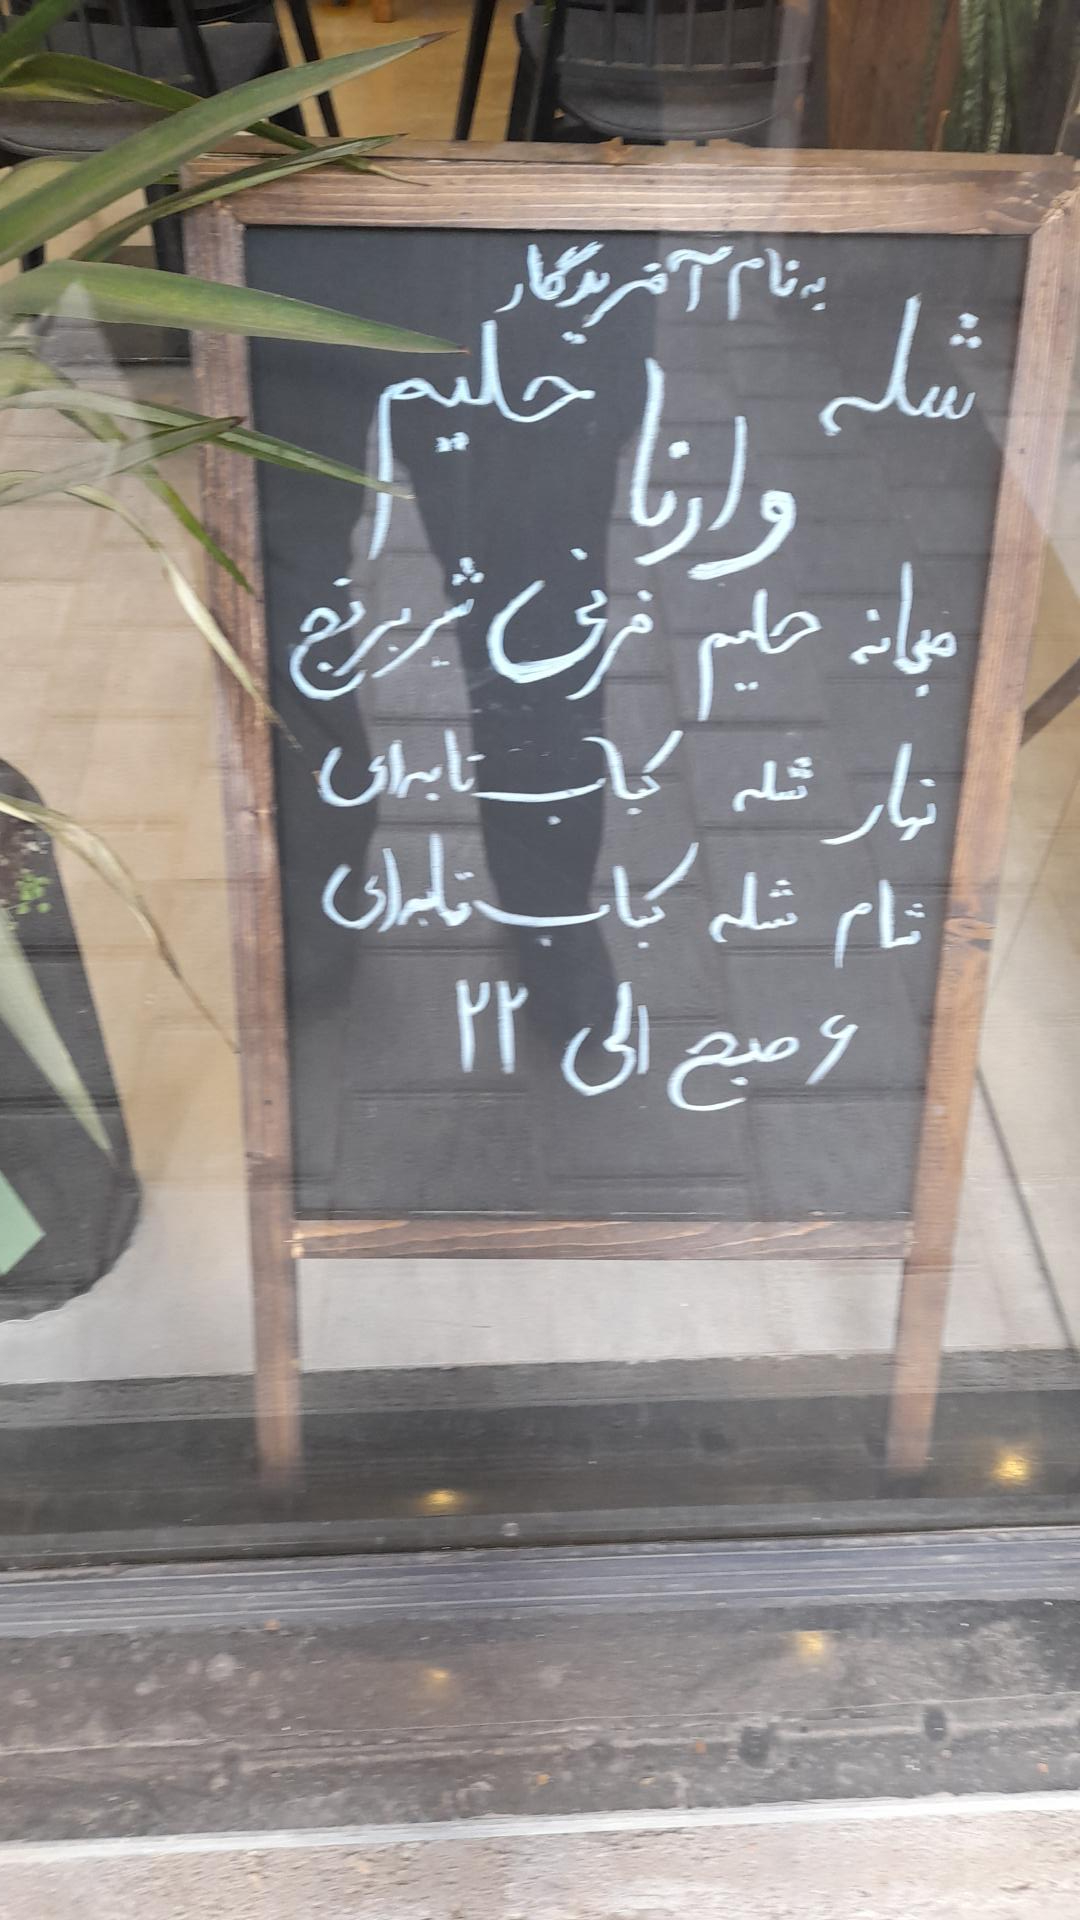 به نام آفریدگار
شله
حلیم
وارنا
صبحانه حلیم فرنی شیربرنج
نهار شله کباب تابه‌ای
شام شله کباب تابه‌ای
۶ صبح الی ۲۲